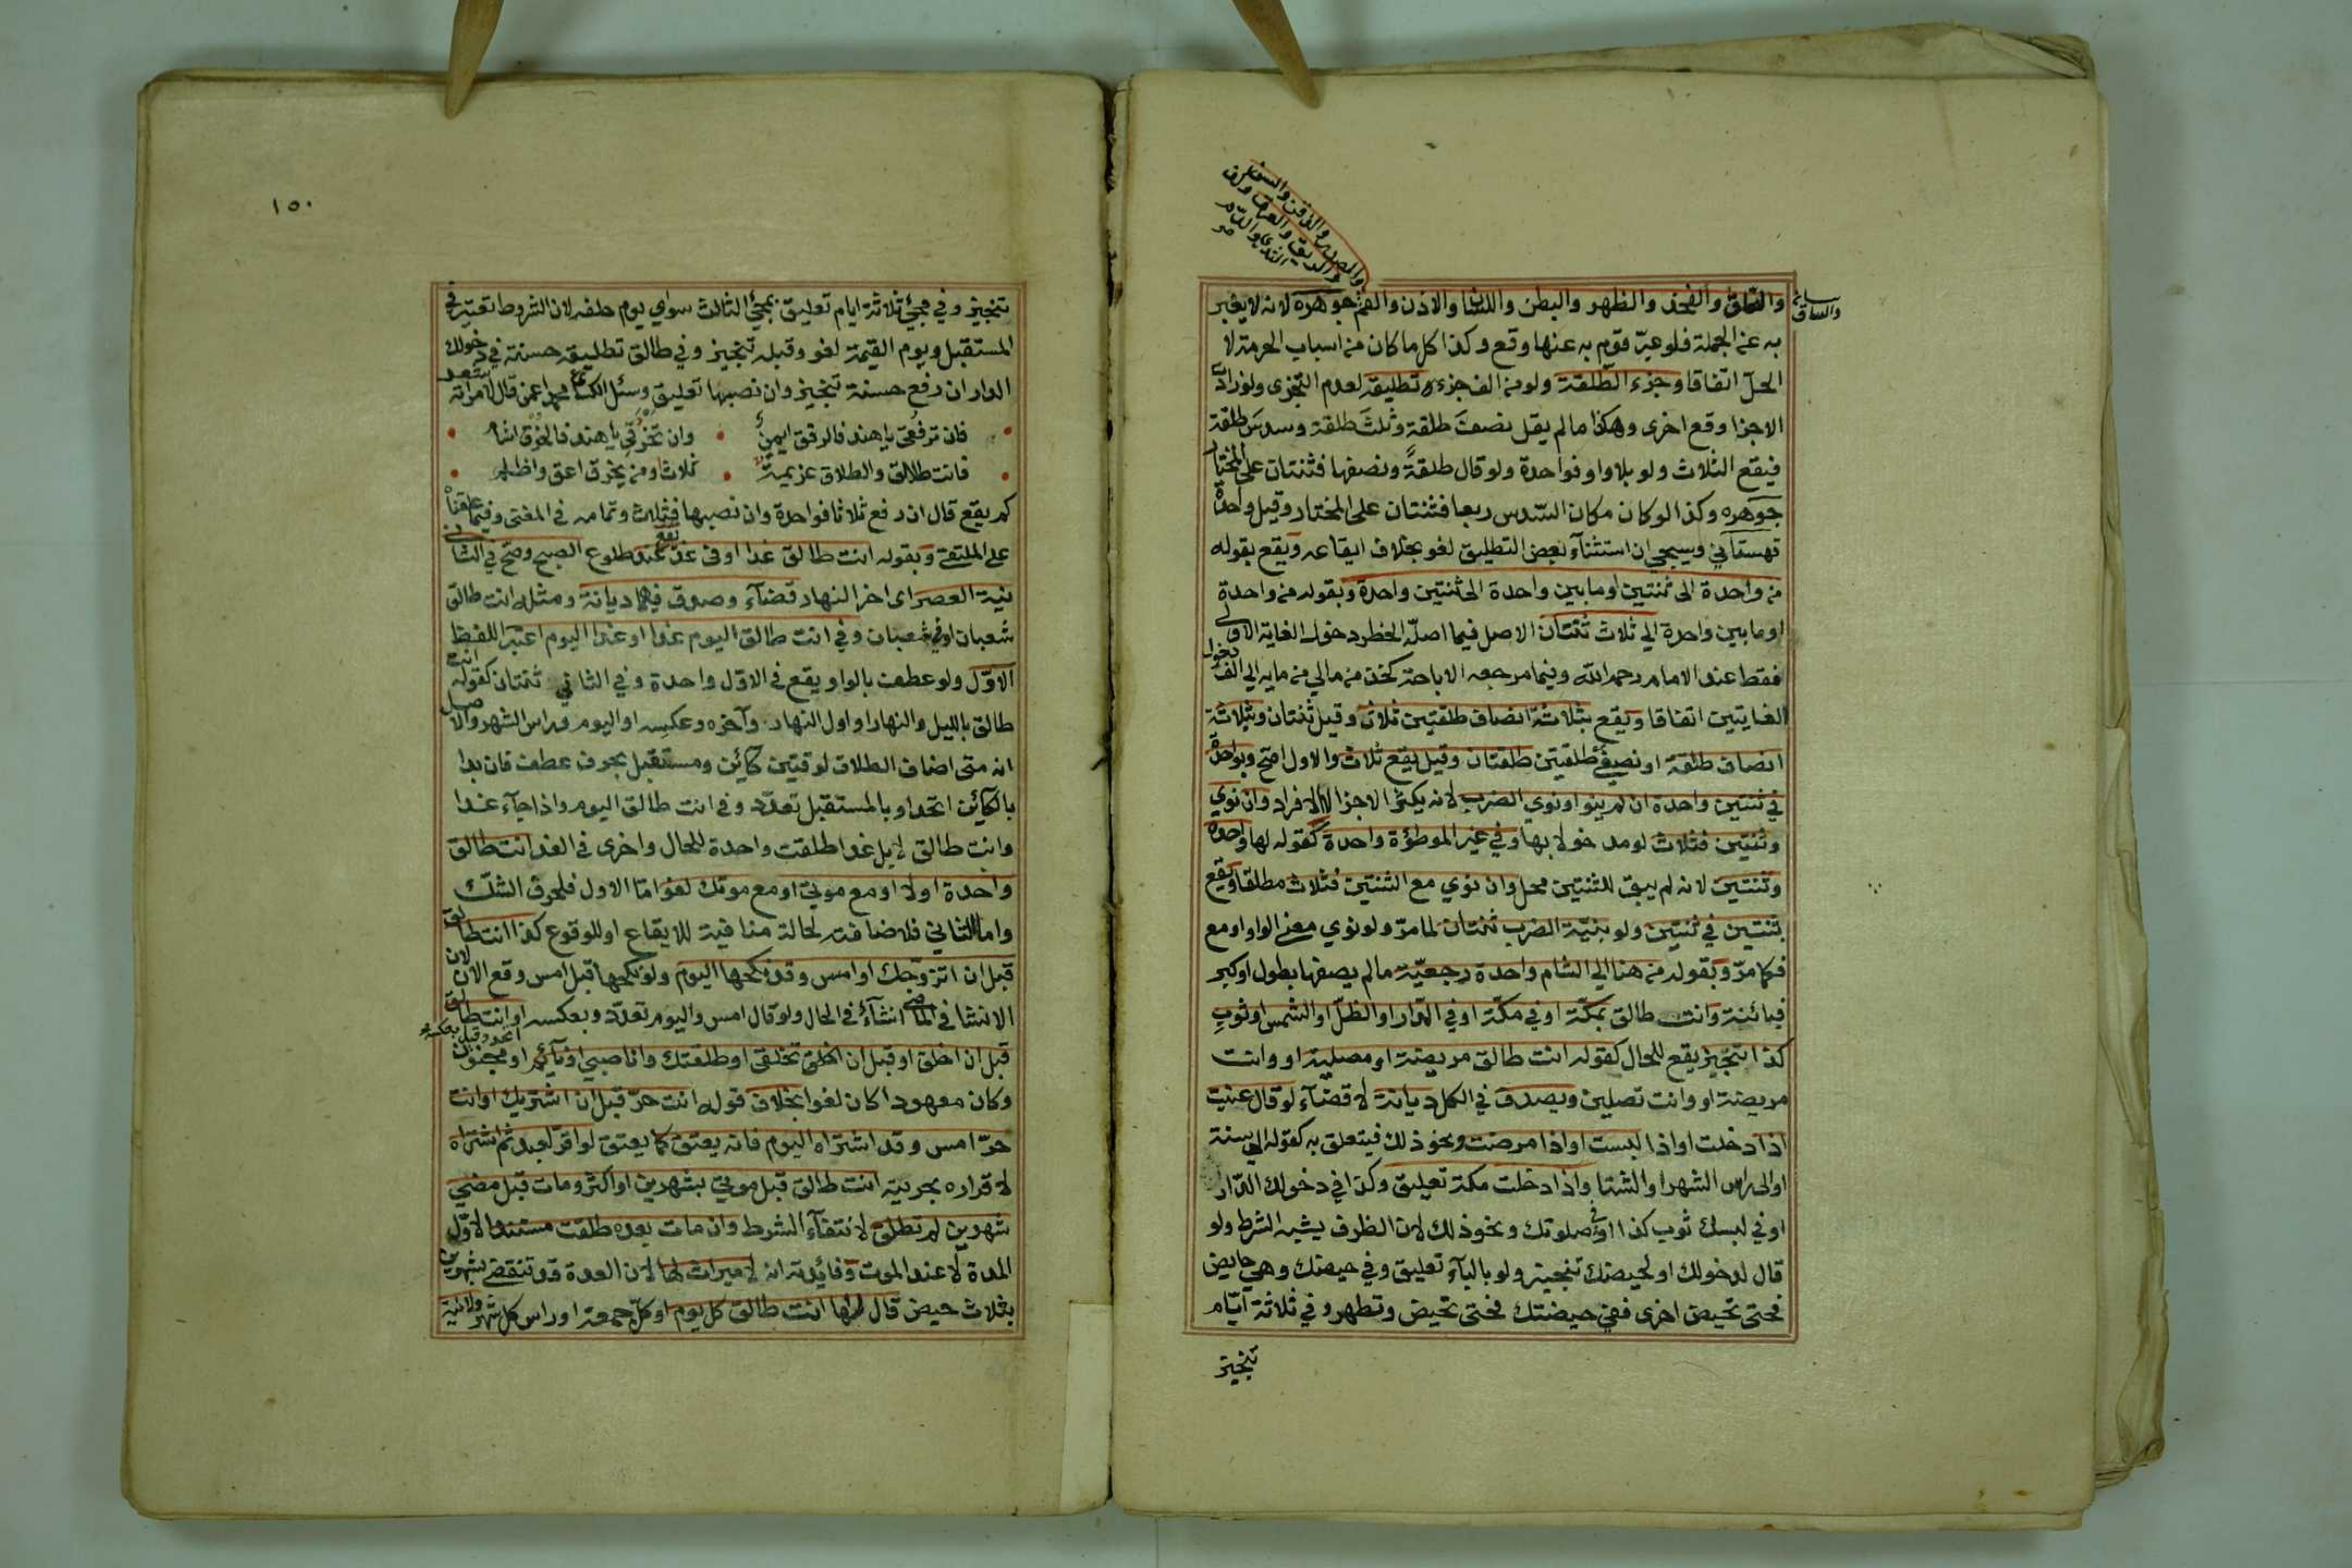 والصدر والذقن والسن
والريق والعرق وكذا
الثدي والدم
والساق
والفخذ والظهر والبطن واللسان والاذن والفم جوهره لانه لا يعبر
به عن الجملة فلو عبر قوم به عنها وقع وكذا كل ما كان من اسباب الحرمة لا
الحل اتفاقا وجزء الطلقة ولو من الف جزء تطليقة لعدم التجزى ولو زادت
الاجزا وقع اخرى وهكذا ما لم يقل نصف طلقة وثلث طلقة وسدس طلقة
فيقع الثلاث ولو بلا واو فواحدة ولو قال طلقة ونصفها فثنتان على المختار
جوهره وكذا لو كان مكان السدس ربعا فثنتان على المختار وقيل واحدة
قهستاني وسيجي ان استثنآء بعض التطليق لغو بخلاف ايقاعه ويقع بقوله
من واحدة الى ثنتين او ما بين واحدة الى ثنتين واحدة وبقوله من واحدة
او ما بين واحدة الى ثلاث ثنتان الاصل فيما اصله الحظر دخول الغاية الاولى
فقط عند الامام رحمه الله وفيما مرجعه الاباحة كخذ من مالي من مايه الى الف دخول
الغايتين اتفاقا ويقع بثلاثة انصاف طلقتين ثلاث وقيل ثنتان وبثلاثة
انصاف طلقة او نصفي طلقتين طلقتان وقيل يقع ثلاث والاول اصح وبواحدة
في ثنتين واحدة ان لم ينو او نوي الضرب لانه يكثر الاجزا لا الافراد وان نوي
وثنتين فثلاث لو مدخولا بها وفي غير الموطؤة واحدة كقوله لها واحدة
وثنتين لانه لم يبق للثنتين محل وان نوي مع الثنتين فثلاث مطلقا ويقع
بثنتين في ثنتين ولو بنية الضرب ثنتان لما مر ولو نوي معنى الواو او مع
فكما مر وبقوله من هنا الى الشام واحدة رجعية ما لم يصفها بطول او كبر
فبائنة وانت طالق بمكة او في مكة او في الدار او الظل او الشمس او ثوب
كذا تنجيز يقع للحال كقوله انت طالق مريضة او مصلية او وانت
مريضة او وانت تصلين ويصدق في الكل ديانة لا قضآء لو قال عنيت
اذا دخلت او اذا لبست او اذا مرضت ونحو ذلك فيتعلق به كقوله الى سنة
او الى راس الشهر او الشتا واذا دخلت مكة تعليق وكذا في دخولك الدار
او في لبسك ثوب كذا او في صلوتك ونحو ذلك لان الظرف يشبه الشرط ولو
قال لدخولك او لحيضك تنجيز ولو بالبآء تعليق وفي حيضك وهي حايض
فحتى تحيض اخرى ففي حيضتك فحتى تحيض وتطهر وفي ثلاثة ايام
تنجيز
١٥٠
تنجيز وفي مجئ ثلاثة ايام تعليق بمجئ الثالث سواي يوم حلفه لان الشروط تعتبر في
المستقبل ويوم القيمة لغو وقبله تنجيز وفي طالق تطليقة حسنة في دخولك
الدار ان رفع حسنة تنجيز وان نصبها تعليق وسئل الكسائي محمدا عمن قال لامراته
فان ترفقي يا هند فالرفق ايمن • وان تخرقي يا هند فالخرق اشأم
فانت طالق والطلاق عزيمة • ثلاث ومن يخرق اعق واظلم
كم يقع قال ان رفع ثلاثا فواحدة وان نصبها فثلث وتمامه في المغني وفيما علقناه
على الملتقى وبقوله انت طالق غدا او في غد يقع عند طلوع الصبح وصح في الثاني
نية العصر اى اخر النهار قضآء وصدق فيهما ديانة ومثله انت طالق
شعبان او في شعبان وفي انت طالق اليوم غدا او غدا اليوم اعتبر اللفظ
الاول ولو عطف بالواو يقع في الاول واحدة وفي الثاني ثنتان كقوله انت
طالق بالليل والنهار او اول النهار وآخره وعكسه او اليوم وراس الشهر والاصل
انه متى اضاف الطلاق لوقتين كائن ومستقبل بحرف عطف فان بدا
بالكآئن اتحد او بالمستقبل تعدد وفي انت طالق اليوم واذا جآء غدا
وانت طالق لا بل غدا طلقت واحدة للحال واخرى في الغد انت طالق
واحدة اولا او مع موتي او مع موتك لغو اما الاول فلحرف الشك
واما الثاني فلاضافته لحالة منافية للايقاع او للوقوع كذا انت طالق
قبل ان اتزوجك او امس وقد نكحها اليوم ولو نكحها قبل امس وقع الان لان
الانشا في الماضي انشآء في الحال ولو قال امس واليوم تعدد وبعكسه اتحد وقيل بعكسه او انت طالق
قبل ان اخلق او قبل ان تخلقي او طلقتك وانا صبي او نآئم او مجنون
وكان معهودا كان لغوا بخلاف قوله انت حر قبل ان اشتريك او انت
حر امس وقد اشتراه اليوم فانه يعتق كما يعتق لو اقر لعبد ثم اشتراه
لاقراره بحريته انت طالق قبل موتي بشهرين او اكثر ومات قبل مضي
شهرين لم تطلق لانتفآء الشرط وان مات بعده طلقت مستندا لاول
المدة لا عند الموت وفائدته انه لا ميراث لها لان العدة قد تنقضي بشهرين
بثلاث حيض قال لها انت طالق كل يوم او كل جمعة او راس كل شهر ولا نية